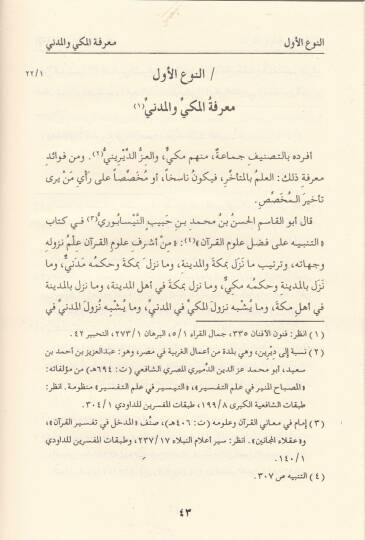 النوع الأول معرفة المكي والمدني
٢٢/١
/ النوع الأول
معرفةُ المكيِّ والمدنيِّ(١)
أفرده بالتصنيفِ جماعةٌ، منهم مكيٌّ، والعِزُّ الدِّيْرينيُّ(٢). ومن فوائدِ
معرفةِ ذلك: العلمُ بالمتأخِّرِ، فيكونُ ناسخاً، أو مُخَصِّصاً على رَأْيِ مَنْ يرى
تأخيرَ المُخَصِّصِ.
قال أبو القاسمِ الحسنُ بنُ محمدِ بنِ حَبيبٍ النَّيْسابوريُّ(٣) في كتاب
«التنبيه على فضل علوم القرآن»(٤): «مِنْ أشرفِ علومِ القرآنِ عِلْمُ نزولِهِ
وجهاتِه، وترتيبِ ما نَزَلَ بمكةَ والمدينةِ، وما نزلَ بمكةَ وحكمُه مَدَنيٌّ، وما
نَزَلَ بالمدينةِ وحكمُه مكِّيٌّ، وما نزل بمكةَ في أهلِ المدينةِ، وما نزلَ بالمدينةِ
في أهلِ مكةَ، وما يُشْبه نزولَ المكيِّ في المدنيِّ، وما يُشْبِه نُزولَ المدنيِّ في
(١) انظر: فنون الأفنان ٣٣٥، جمال القراء ٥/١، البرهان ٢٧٣/١، التحبير ٤٢.
(٢) نسبة إلى دِيْرِين، وهي بلدة من أعمال الغربية في مصر، وهو: عبدالعزيز بن أحمد بن
سعيد، أبو محمد عز الدين الدَّميري المصري الشافعي (ت: ٦٩٤هـ) من مؤلفاته:
«المصباح المنير في علم التفسير»، «التيسير في علم التفسير» منظومة. انظر:
طبقات الشافعية الكبرى ١٩٩/٨، طبقات المفسرين للداودي ٣٠٤/١.
(٣) إمام في معاني القرآن وعلومه (ت: ٤٠٦هـ)، صنَّف «المدخل في تفسير القرآن»،
و«عقلاء المجانين». انظر: سير أعلام النبلاء ٢٣٧/١٧، وطبقات المفسرين للداودي
١٤٠/١.
(٤) التنبيه ص ٣٠٧.
٤٣